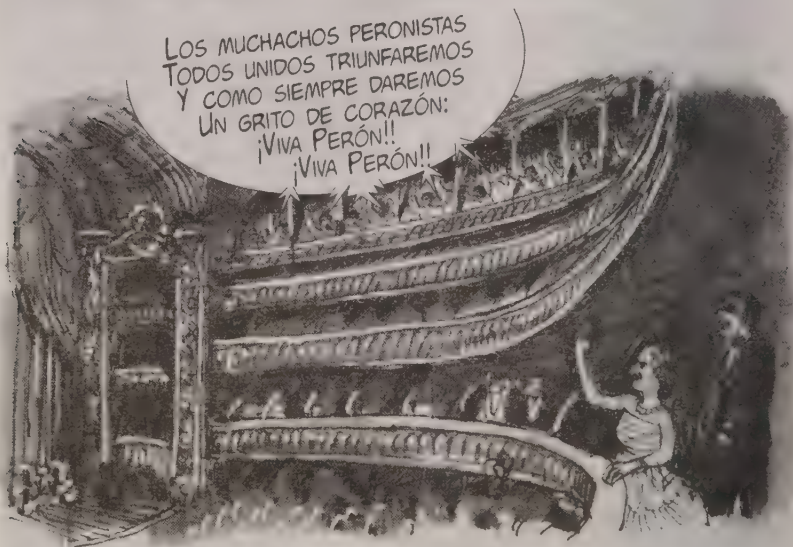 LOS MUCHACHOS PERONISTAS
TODOS UNIDOS TRIUNFAREMOS
Y COMO SIEMPRE DAREMOS
UN GRITO DE CORAZÓN:
¡VIVA PERÓN!!
¡VIVA PERÓN!!